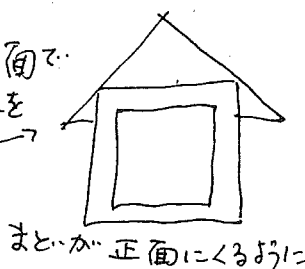 面で
を
まどが正面にくるように